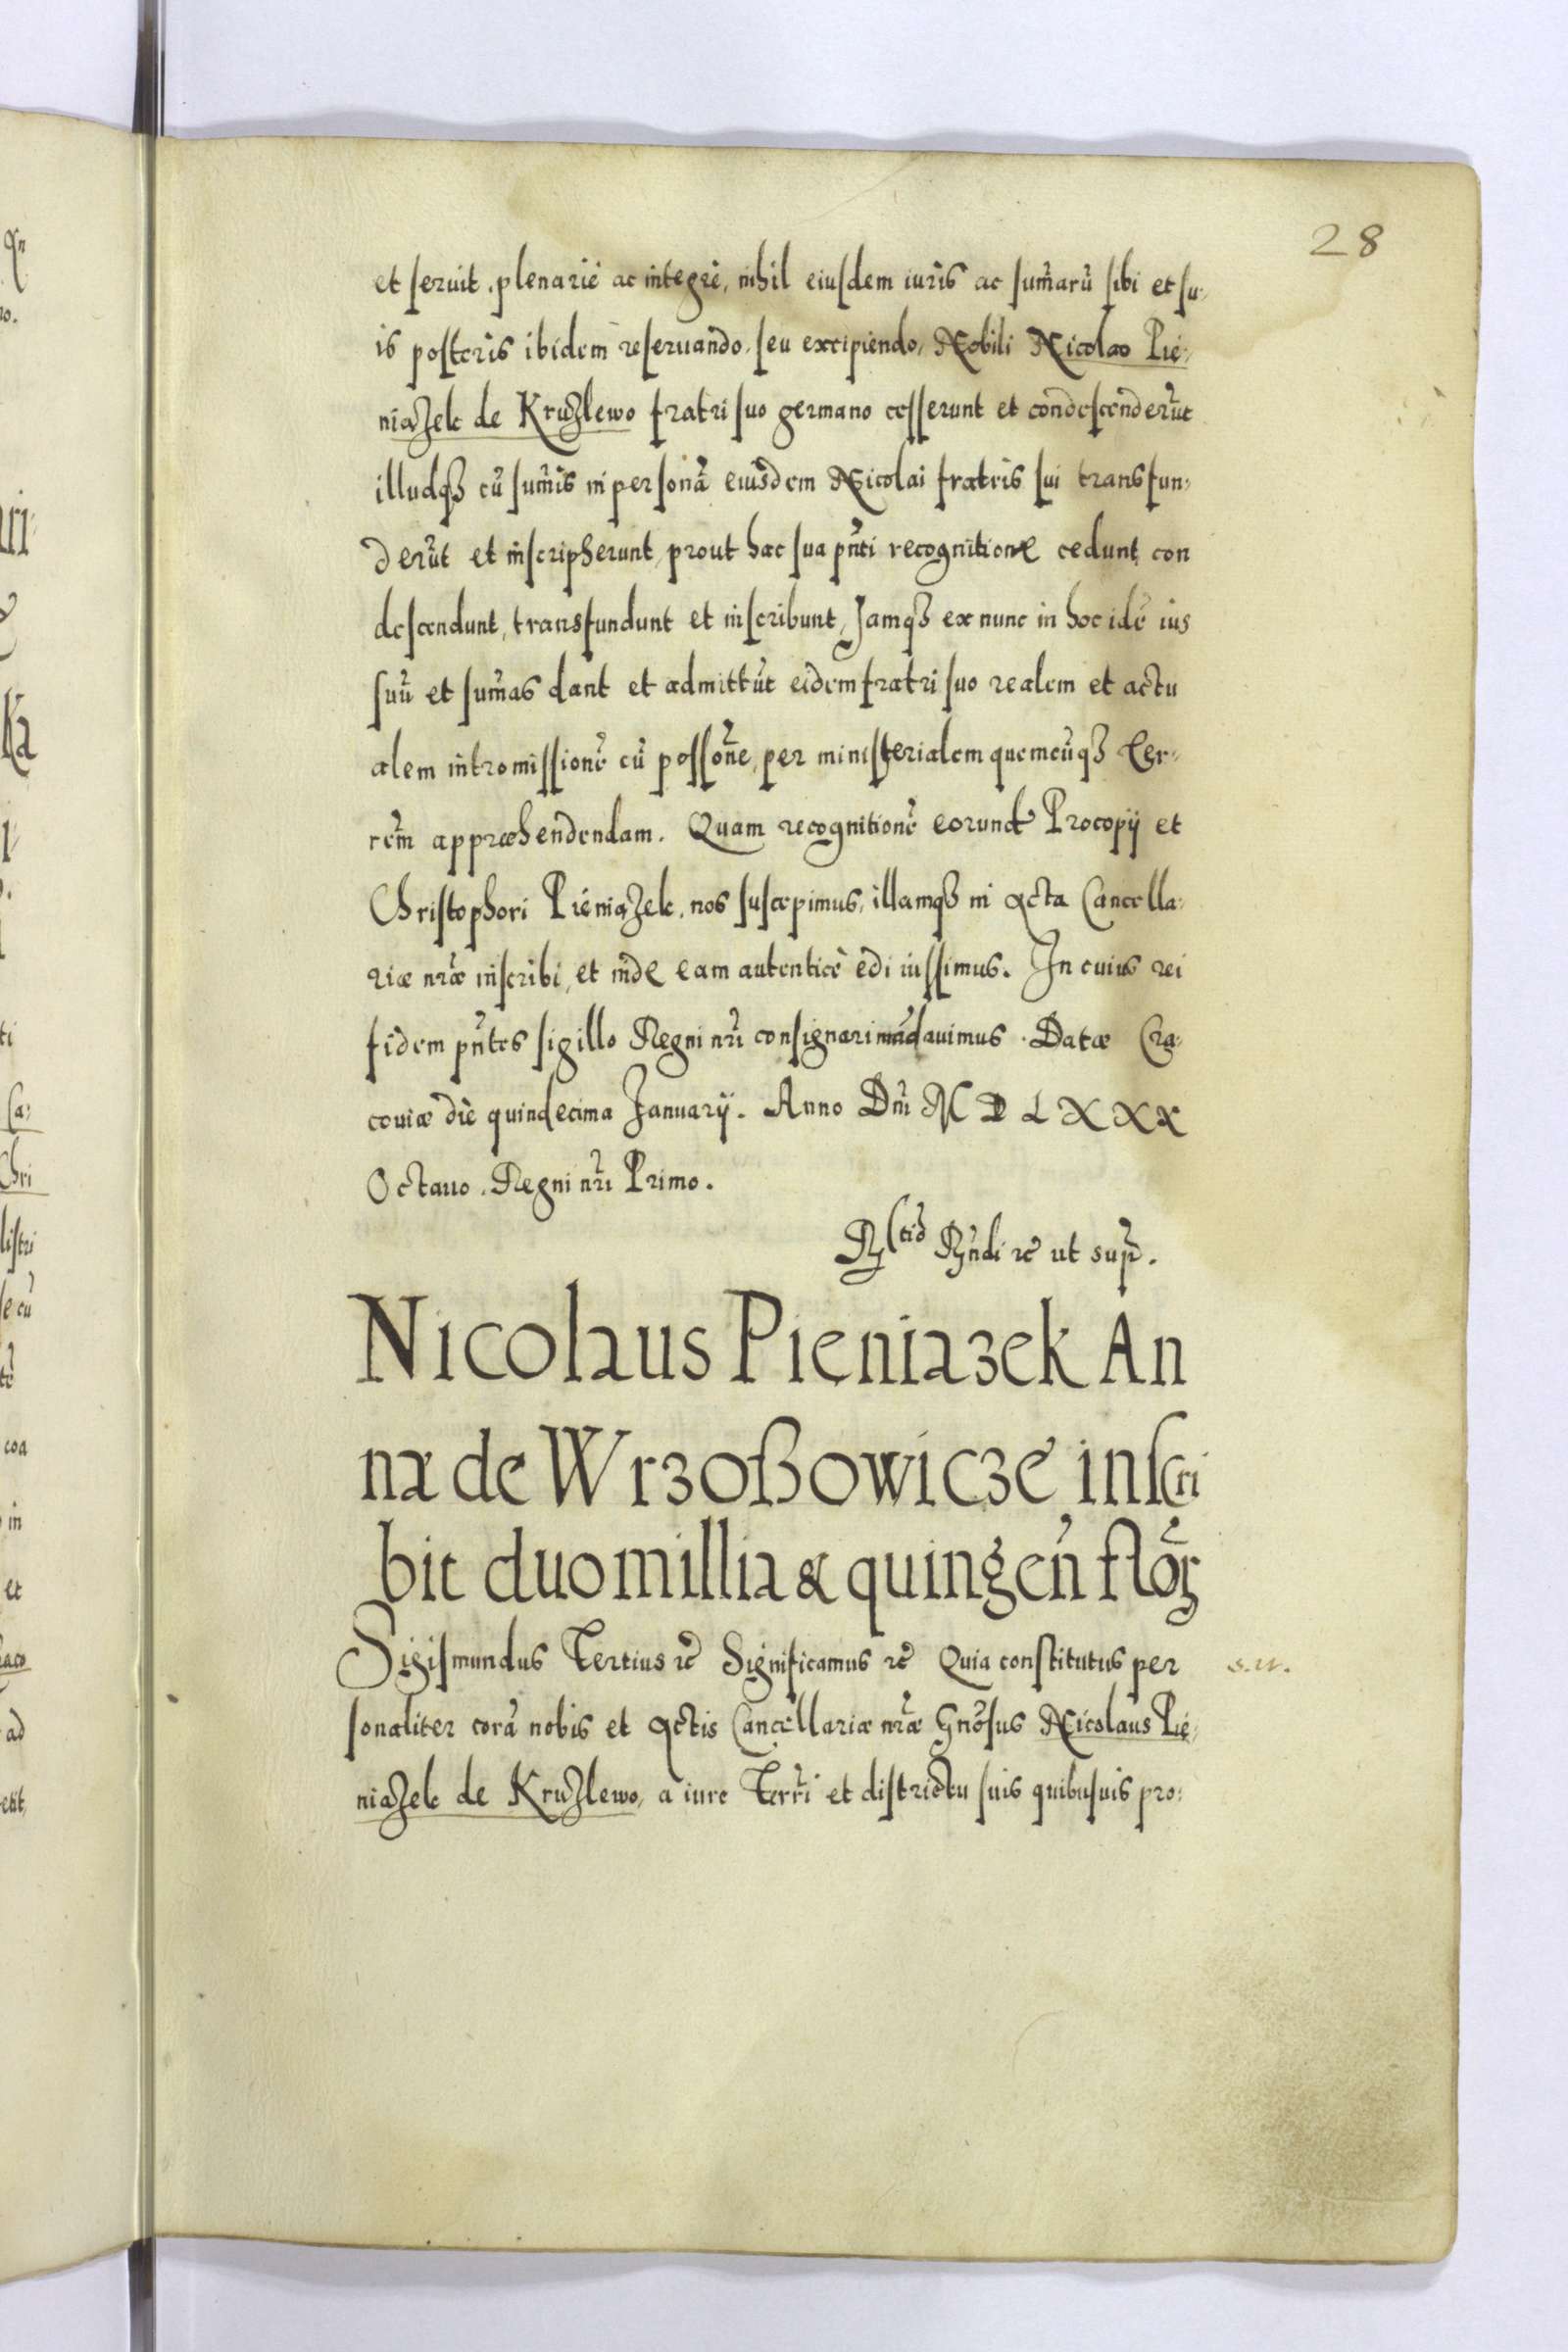 28
et seruit. plenariè ac integrè, nihil eiusdem iuris ac sum̃arũ sibi et su-
is posteris ibidem reseruando, seu excipiendo, Nobili Nicolao Pie-
niąZek de KruZlewo fratri suo germano cesserunt et condescenderũt
illudqȝ cũ sum̃is in personã eiusdem Nicolai fratris sui transfun-
derũt et inscripserunt, prout hac sua pñti recognitione cedunt, con
descendunt, transfundunt et inscribunt, Jamqȝ ex nunc in hoc idẽ ius
suũ et sum̃as dant et admittũt eidem fratri suo realem et actu
alem intromissionẽ cũ possõne, per ministerialem quemcũqȝ Ter-
rẽm appræhendendam. Quam recognitionẽ eorund Procopij et
Christophori PieniąZek, nos suscepimus, illamqȝ in Acta Cancella-
riæ nr̃æ inscribi, et inde eam autenticè edi iussimus. In cuius rei
fidem pñtes sigillo Regni nr̃i consignari mãdauimus. Datæ Cra-
couiæ die quindecima Januarij. Anno Dñi M D L X X X
Octauo. Regni nr̃i Primo.
ut supr̃.
Nicolaus Pieniazek An
næ de Wrzoßowicze inscri
bit duo millia & quingeñ flõꝝ
Sigismundus Tertius ꝛc̃ Significamus ꝛc̃ Quia constitutus per
s. u.
sonaliter corã nobis et Actis Cancellariæ nr̃æ Gñosus Nicolaus Pie-
niąZek de KruZlewo, a iure Terrr̃i et districtu suis quibusuis pro-